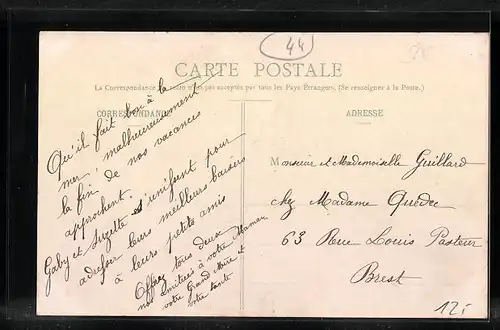 44
CARTE POSTALE
La Correspondance au recto n'est pas acceptée par tous les Pays Étrangers. (Se renseigner à la Poste.)
CORRESPONDANCE
ADRESSE
Qu'il fait bon à la
mer, malheureusement
la fin de nos vacances
approchent.
Gaby et Suzette s'unissent pour
adresser leurs meilleurs baisers
à leurs petits amis
Offrez tous deux
nos amitiés à votre Maman
votre Grand Mère et
votre tante
Monsieur et Mademoiselle Guillard
chez Madame Quedec
63 Rue Louis Pasteur
Brest
12,-